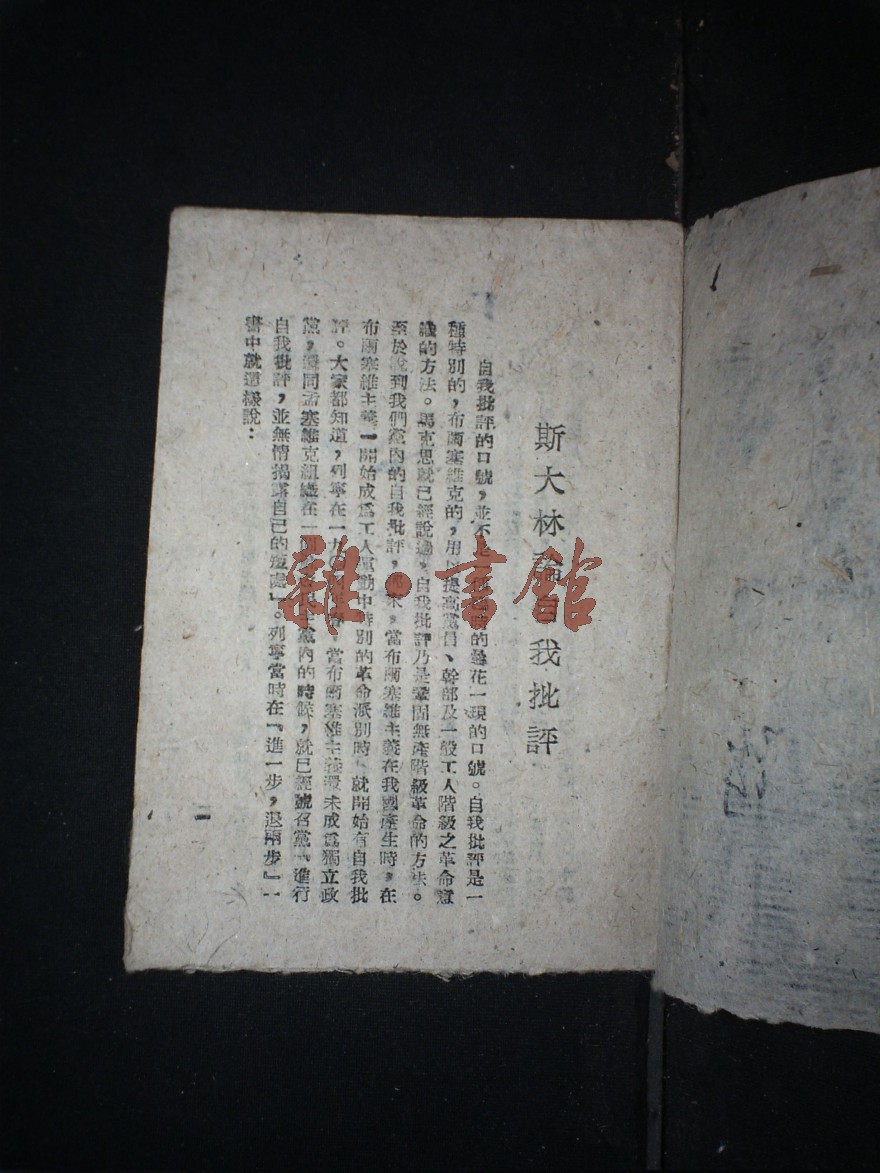 斯大林論自我批評
自我批評的口號，並不是的曇花一現的口號。自我批評是一
種特別的，布爾塞維克的，用以提高黨員、幹部及一般工人階級之革命意
識的方法。馬克思就已經說過，自我批評乃是鞏固無產階級革命的方法。
至於說到我們黨內的自我批評，當布爾塞維主義在我國產生時，在
布爾塞維主義一開始成爲工人運動中特別的革命派別時、就開始有自我批
評。大家都知道，列寧在一九當布爾塞維主義還未成爲獨立政
黨，還同孟塞維克組織在一個黨內的時候，就已經號召黨『進行
自我批評，並無情揭露自己的短處』。列寧當時在『進一步，退兩步』一
書中就這樣說：
一
雜·書館